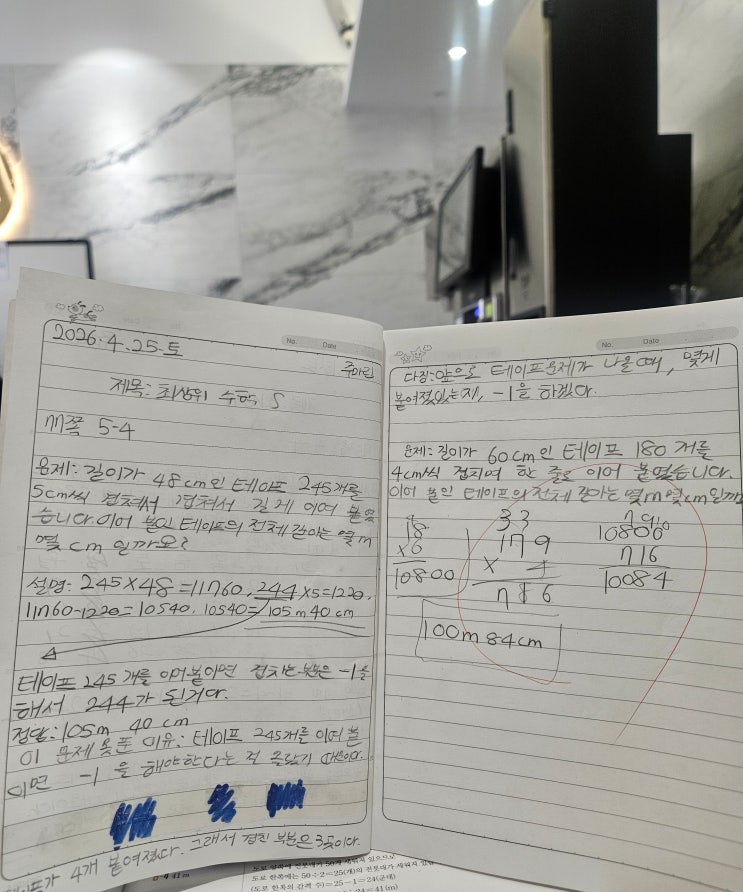 No. Date
2026.4.25.토
주아린
제목: 최상위 수학 S
117쪽 5-4
문제: 길이가 48cm인 테이프 245개를
5cm씩 겹쳐서 겹쳐서 길게 이어 붙였
습니다. 이어 붙인 테이프의 전체 길이는 몇 m
몇 cm 일까요?
설명: 245×48=11760, 244×5=1220,
11760-1220=10540, 10540=105m 40cm
테이프 245개를 이어 붙이면 겹치는 부분은 -1을
해서 244가 된거다.
정답: 105m 40cm
이 문제 못푼 이유: 테이프 245개를 이어 붙
이면 -1을 해야한다는 걸 몰랐기 때문이다.
4개 붙여졌다. 그래서 겹친 부분은 3곳이다.
No. Date
다짐: 앞으로 테이프문제가 나올 때, 몇개
붙여졌있는지, -1을 하겠다.
문제: 길이가 60cm인 테이프 180개를
4cm씩 겹치며 한 줄로 이어 붙였습니다.
이어 붙인 테이프의 전체 길이는 몇 m 몇 cm 일까
4
18
×6
10800
33
179
× 4
716
7 9 10
10800
716
10084
100m 84cm
도로 한쪽에는 50÷2=25(개)의 전봇대가 세워져 있
(도로 한쪽의 간격 수)=25-1=24(군데)